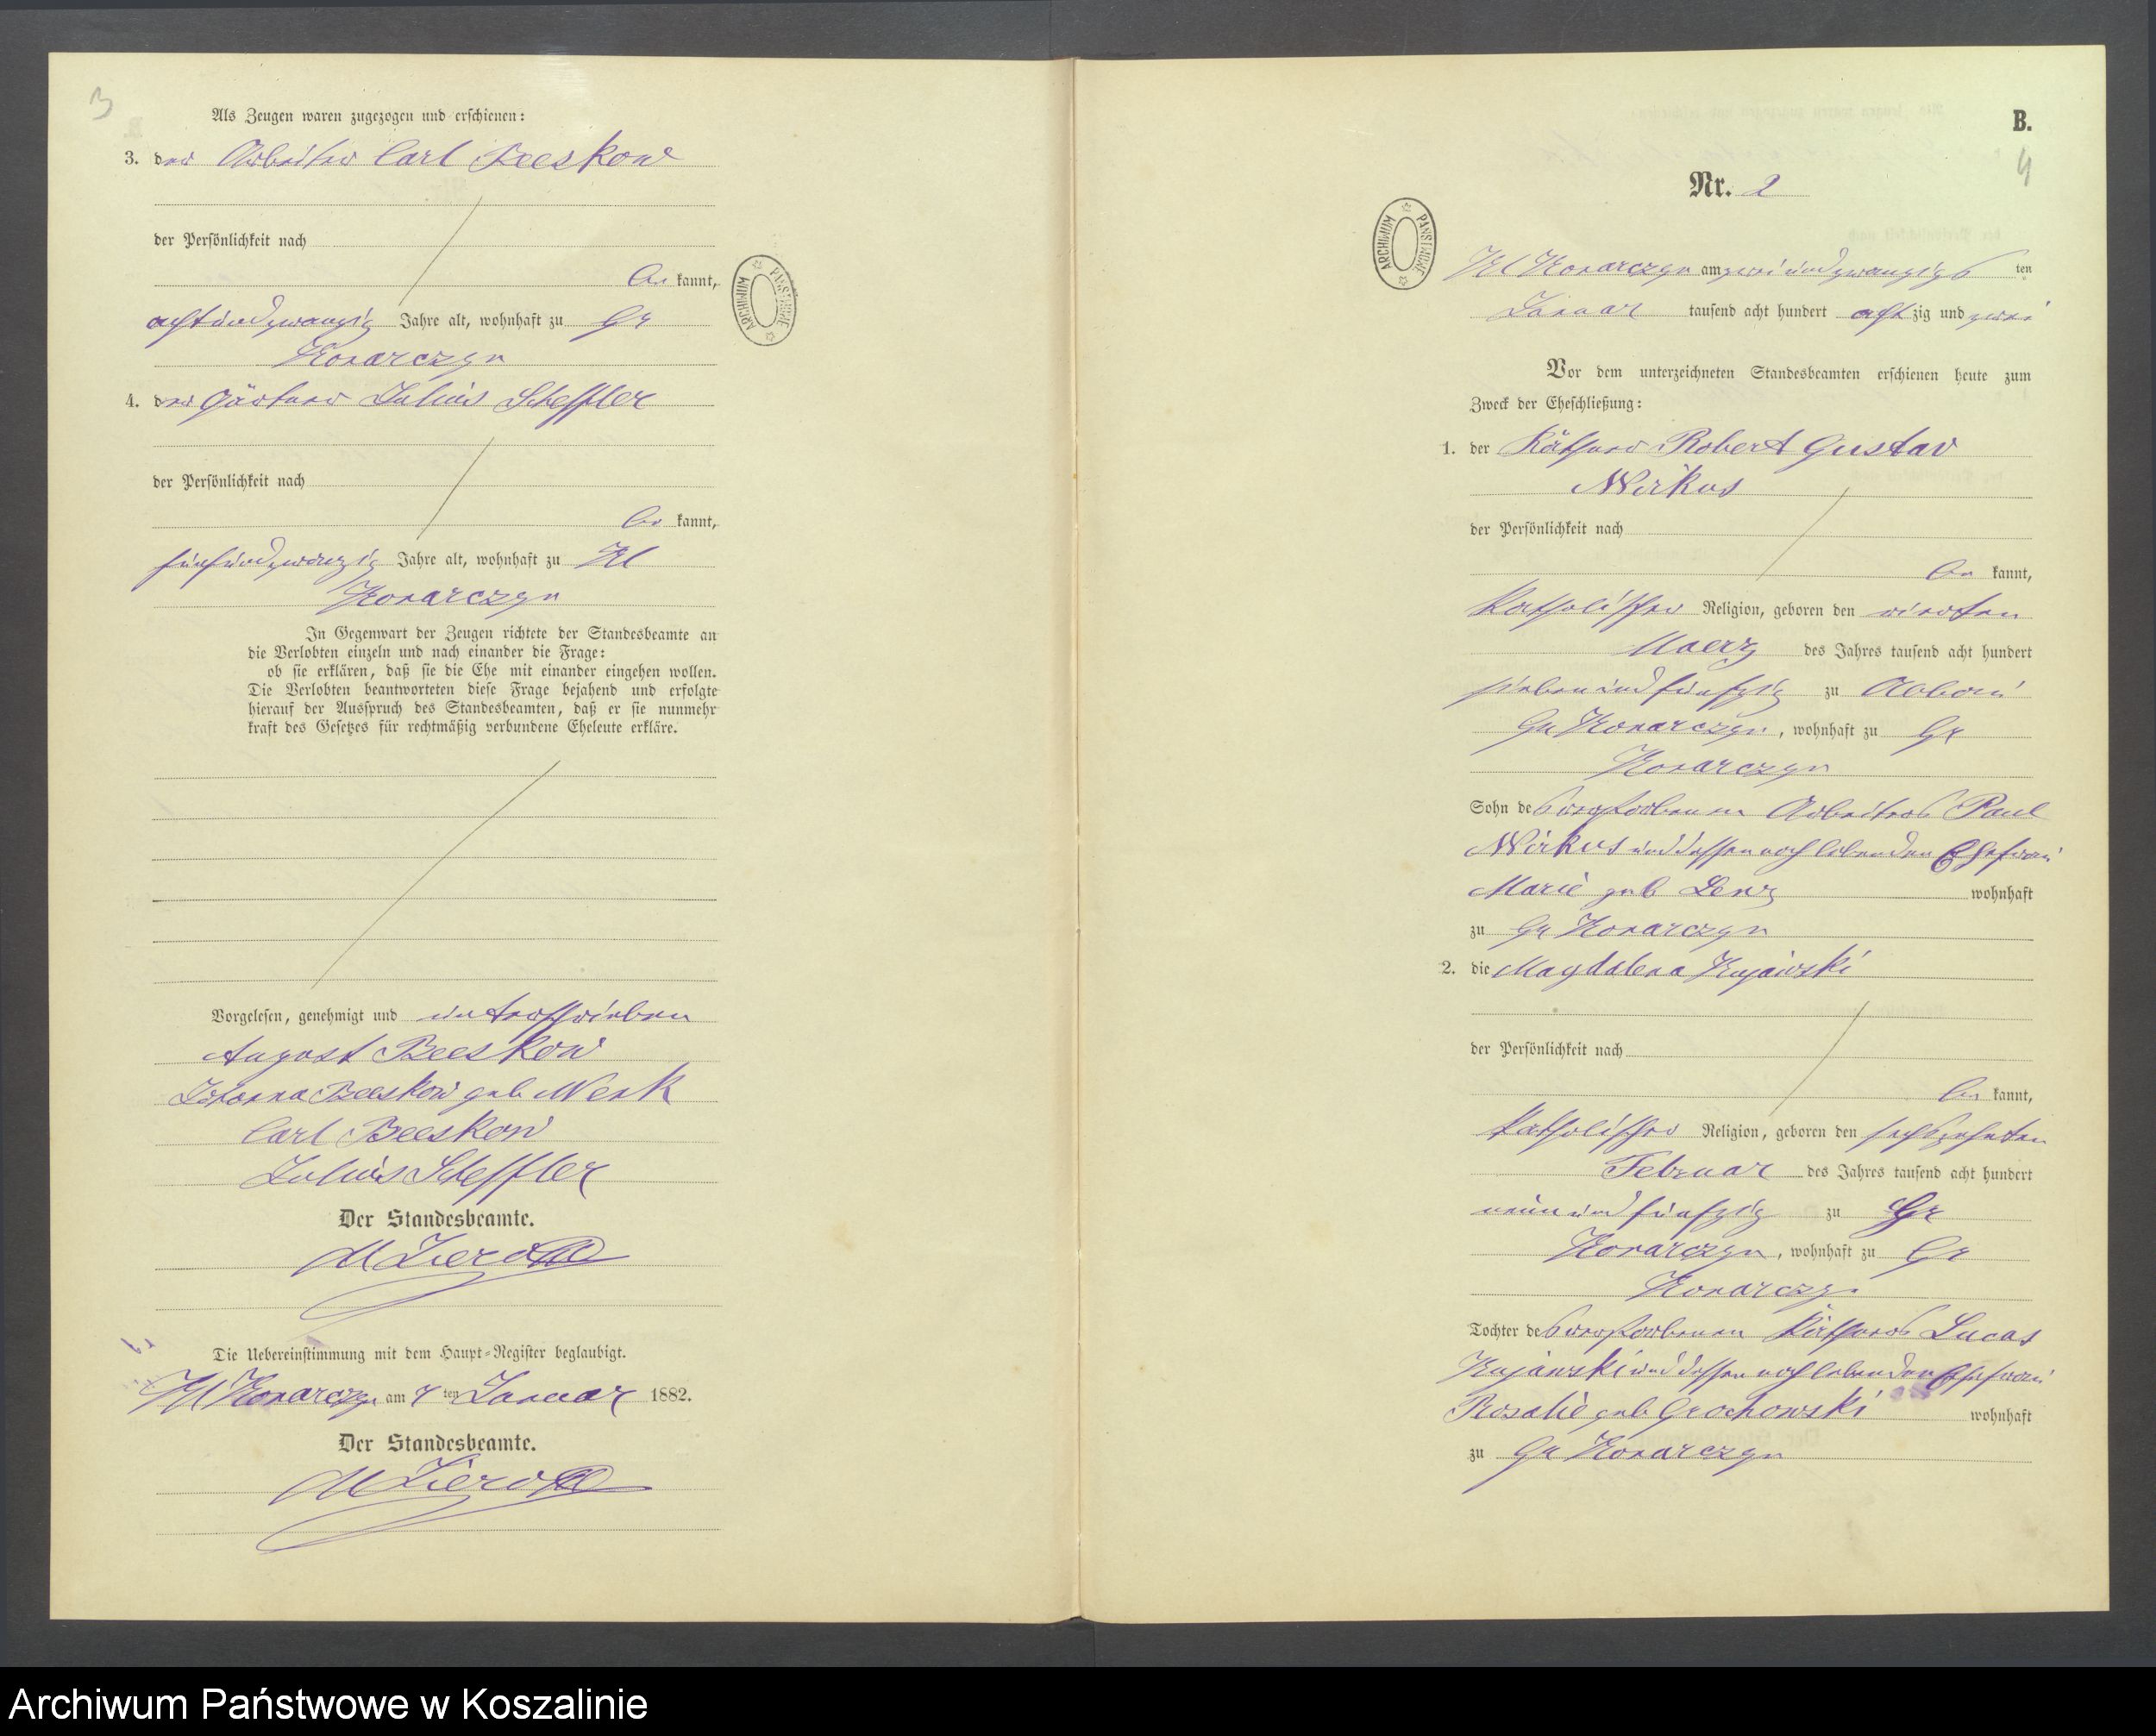 3
Als Zeugen waren zugezogen und erschienen:
3. der Arbeiter Carl Beeskow
der Persönlichkeit nach
be kannt,
achtundzwanzig Jahre alt, wohnhaft zu Gr
Konarczyn
4. der Gärtner Julius Scheffler
der Persönlichkeit nach
be kannt,
fünfundzwanzig Jahre alt, wohnhaft zu Kl
Konarczyn
In Gegenwart der Zeugen richtete der Standesbeamte an
die Verlobten einzeln und nach einander die Frage:
ob sie erklären, daß sie die Ehe mit einander eingehen wollen.
Die Verlobten beantworteten diese Frage bejahend und erfolgte
hierauf der Ausspruch des Standesbeamten, daß er sie nunmehr
kraft des Gesetzes für rechtmäßig verbundene Eheleute erkläre.
Vorgelesen, genehmigt und unterschrieben
August Beeskow
Johanna Beeskow geb Menk
Carl Beeskow
Julius Scheffler
Der Standesbeamte.
Die Uebereinstimmung mit dem Haupt-Register beglaubigt.
Kl Konarczyn am ten Januar 1882.
Der Standesbeamte.
ARCHIWUM PAŃSTWOWE
B.
4
Nr. 2
ARCHIWUM PAŃSTWOWE
Kl Konarczyn am zweiundzwanzigs ten
Januar tausend acht hundert acht zig und zwei
Vor dem unterzeichneten Standesbeamten erschienen heute zum
Zweck der Eheschließung:
1. der Käthner Robert Gustav
Wirkus
der Persönlichkeit nach
be kannt,
katholischer Religion, geboren den vierten
Maerz des Jahres tausend acht hundert
siebenundfünfzig zu Abbau
Gr Konarczyn, wohnhaft zu Gr
Konarczyn
Sohn des verstorbenen Arbeiters Paul
Wirkus und dessen noch lebenden Ehefrau
Marie geb Lenz wohnhaft
zu Gr Konarczyn
2. die Magdalena Kujawski
der Persönlichkeit nach
be kannt,
katholischer Religion, geboren den sechszehnten
Februar des Jahres tausend acht hundert
neunundfünfzig zu Gr
Konarczyn, wohnhaft zu Gr
Konarczyn
Tochter des verstorbenen Käthners Lucas
Kujawski und dessen noch lebenden Ehefrau
Rosalie geb Grochowski wohnhaft
zu Gr Konarczyn
Archiwum Państwowe w Koszalinie